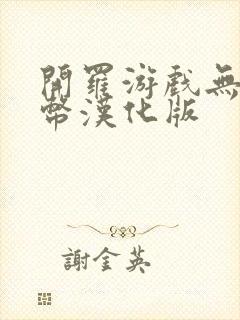 開羅游戲無
幣漢化版
謝金英